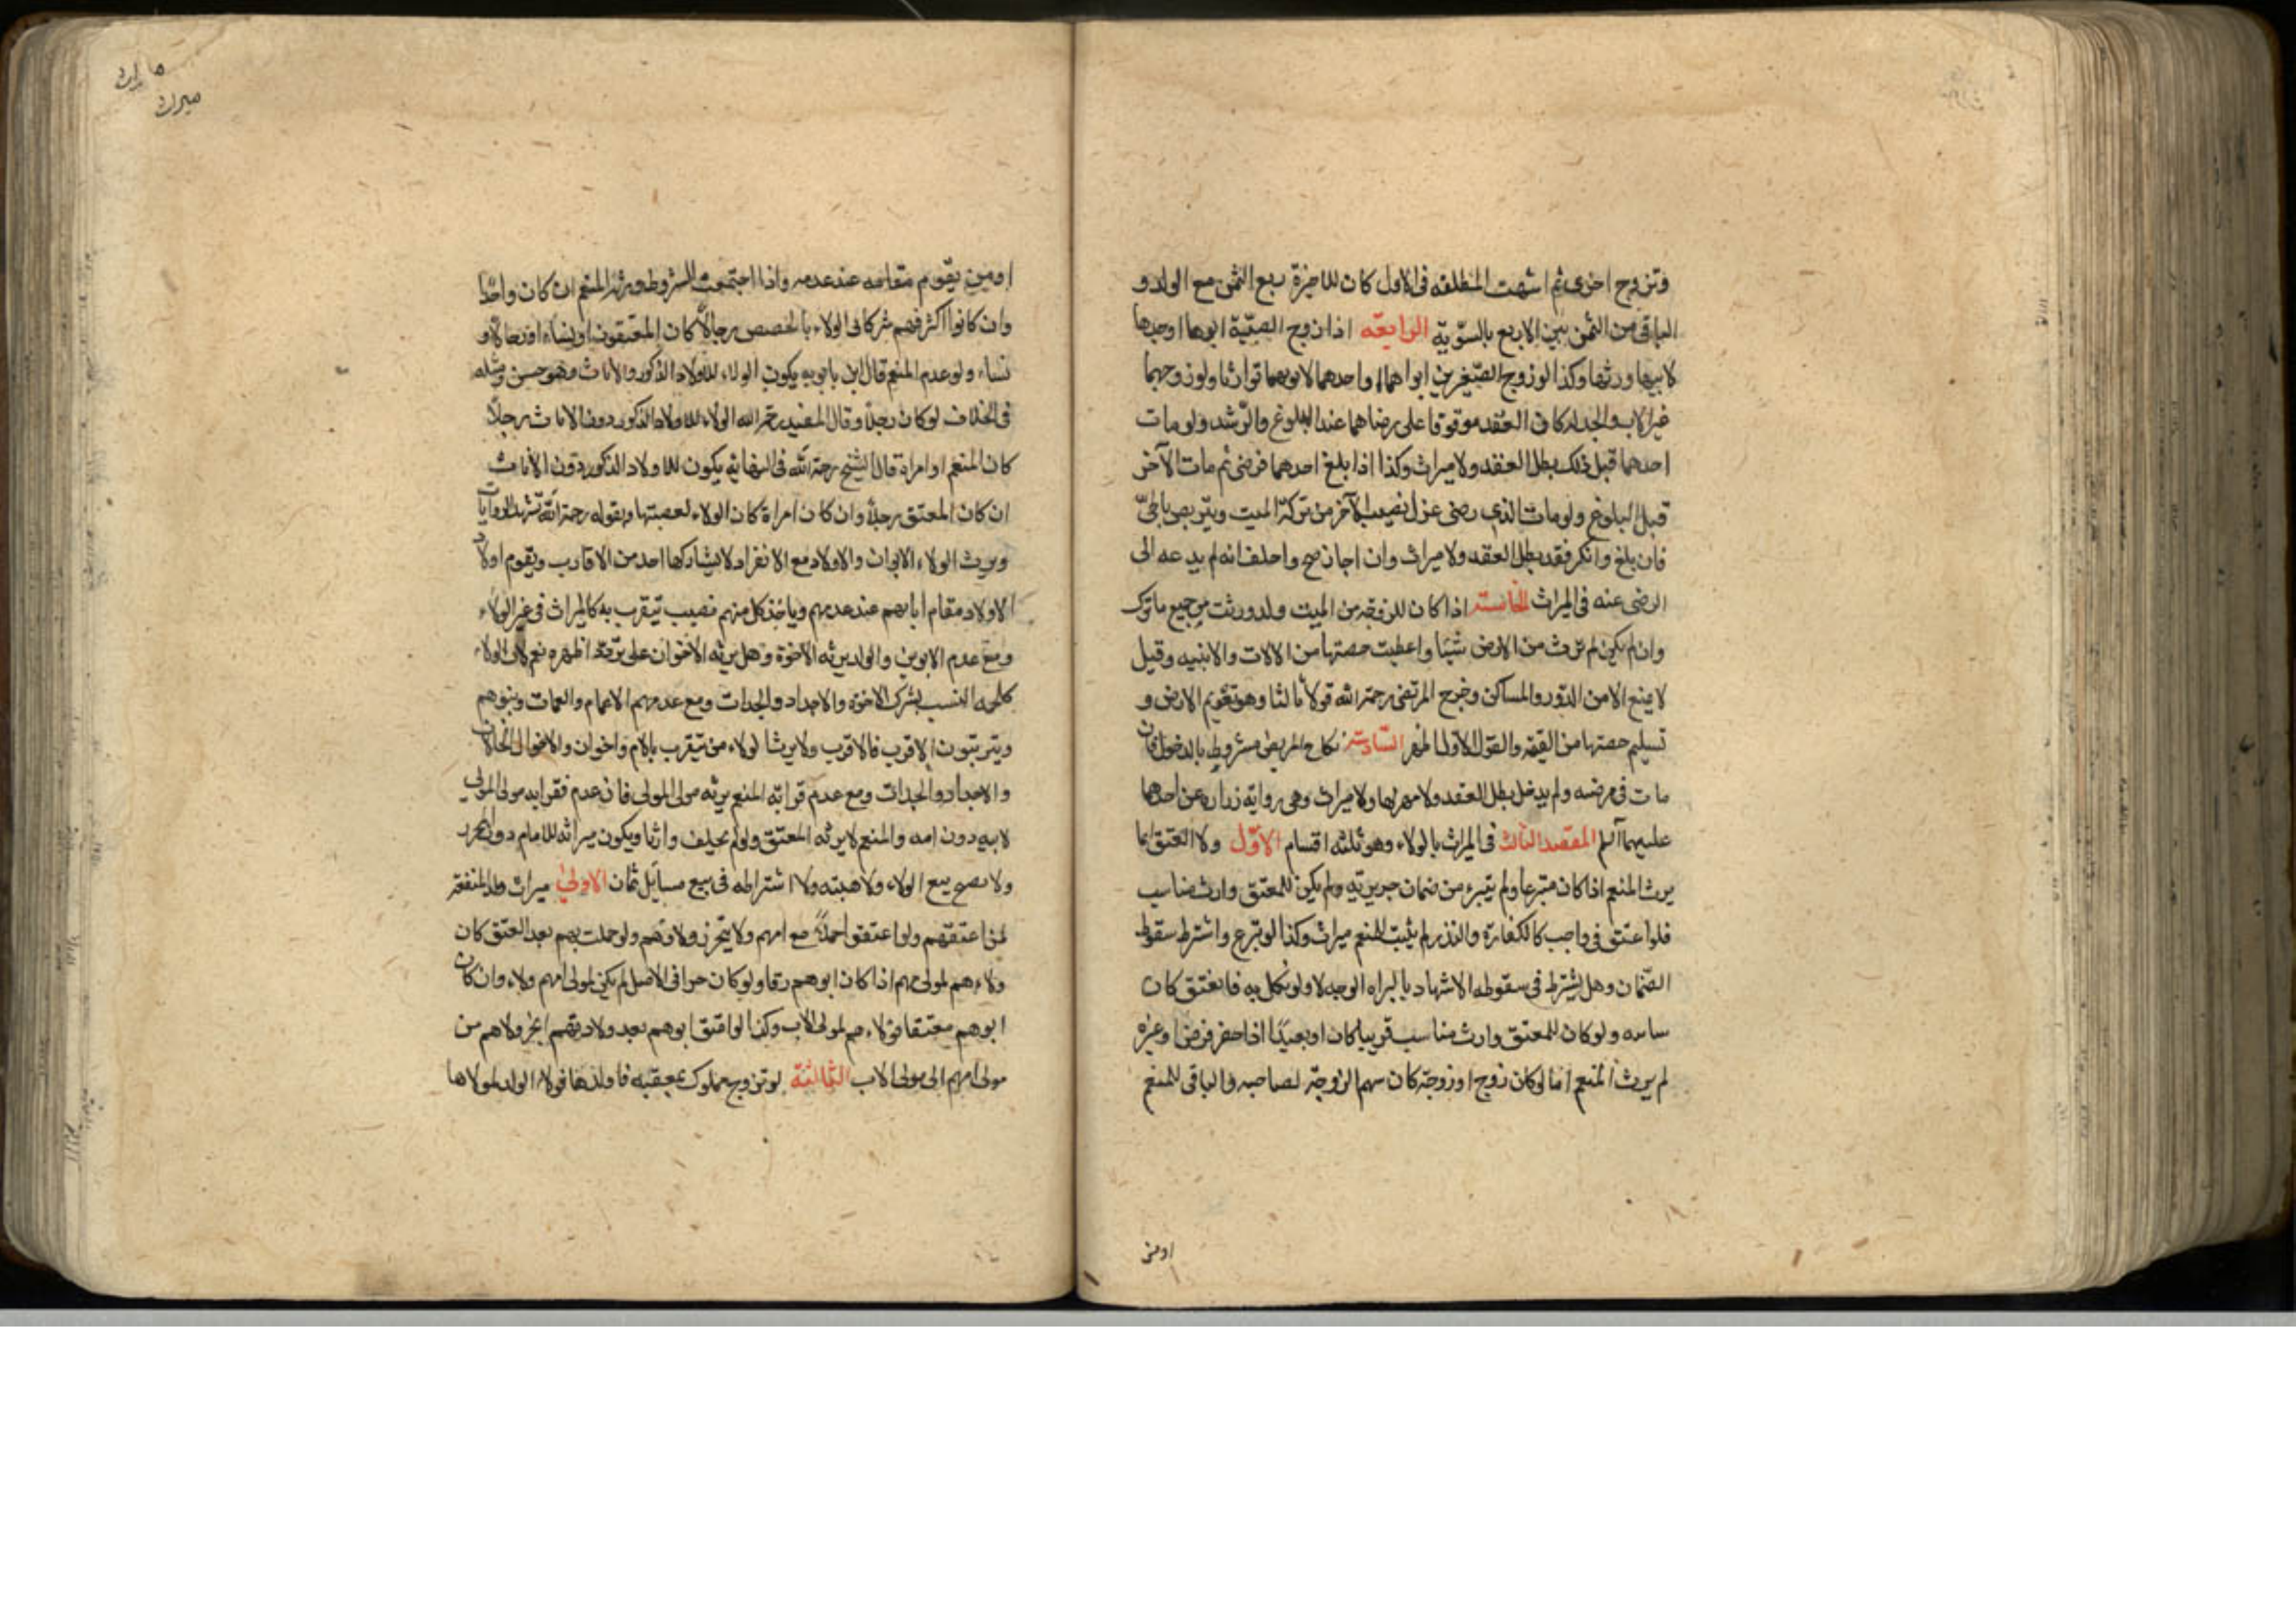 وتزوج اخرى ثم اشتبهت المطلقه فى الاول كان للاخيرة ربع الثمن مع الولد و
الباقى من الثمن بين الاربع بالسّويّة الرابعّه اذا زوج الصبيّة ابوها او جدها
لابيها ورثها وكذا لو زوج الصّغيرين ابواهما او احدهما لابويهما توارثا ولو زوجهما
غير الاب والجد كان العقد موقوفا على رضاهما عند البلوغ والرّشد ولو مات
احدهما قبل ذلك بطل العقد ولا ميراث وكذا اذا بلغ احدهما فرضى ثم مات الآخر
قبل البلوغ ولو مات الذى رضى عزل نصيب الآخر من تركة الميت ويتربص بالحىّ
فان بلغ وانكر فقد بطل العقد ولا ميراث وان اجاز صح واحلف انه لم يدعه الى
الرضى عنه فى الميراث الخامسة اذا كان للزوجة من الميت ولد ورثت من جميع ما ترك
وان لم يكن لم ترث من الارض شيئا واعطيت حصتها من الالات والابنيه وقيل
لا يمنع الا من الدّور والمساكن وخرج المرتضى رحمة الله قولا ثالثا وهو تقويم الارض و
تسليم حصتها من القيمة والقول الاول اظهر السّادسة نكاح المريض مشروط بالدخول فان
مات فى مرضه ولم يدخل بطل العقد ولا مهر لها ولا ميراث وهى رواية زرارة عن احدهما
عليهما السلم المقصد الثالث فى الميراث بالولاء وهو ثلثه اقسام الاوّل ولاا العتق انما
يرث المنعم اذا كان متبرعا ولم يتبرء من ضمان جريرته ولم يكن للمعتق وارث مناسب
فلو اعتق فى واجب كالكفارة والنذر لم يثبت للمنعم ميراث وكذا لو تبرع واشترط سقوط
الضّمان وهل يشترط فى سقوطه الاشهاد بالبراه الوجه لا ولو نكل به فانعتق كان
سايبه ولو كان للمعتق وارث مناسب قريبا كان او بعيدًا اذا حضر فرض او غيره
لم يرث المنعم اما لو كان زوج او زوجة كان سهم الزوجّة لصاحبه والباقى للمنعم
اومن
ميراث
او من يقوم مقامه عند عدمه واذا اجتمعت الشروط ورثه المنعم ان كان واحدا
وان كانوا اكثر فهم شركا فى الولاء بالحصص رجالاً كان المعتقون او نساء او رجالا و
نساء ولو عدم المنعم قال ابن بابويه يكون الولاء للاولاد الذكور والاناث وهو حسن ومثله
فى الخلاف لو كان رجلا وقال المفيد رحمه الله الولاء للاولاد الذكور دون الاناث رجلاً
كان المنعم او امراة قال الشيخ رحمة الله فى النهايه يكون للاولاد الذكور دون الاناث
ان كان المعتق رجلا وان كان امراة كان الولاء لعصبتها وبقوله رحمة الله تشهد الروايات
ويرث الولاء الابوان والاولاد مع الانفراد لا يشاركها احد من الاقارب ويقوم اولاد
الاولاد مقام ابايهم عند عدمهم وياخذ كل منهم نصيب من يتقرب به كالميراث فى غير الولاء
ومع عدم الابوين والولد يرثه الاخوة وهل يرثه الاخوان على تردد اظهره نعم لان الولاء
كلحمه النسب يشرك الاخوة والاجداد والجدات ومع عدمهم الاعمام والعمات وبنوهم
ويتربتون الاقرب فالاقرب ولا يرث الولاء من يتقرب بالام واخوان والاخوال الخالان
والاجداد والجدات ومع عدم قرابة المنعم يرثه مولى المولى فان عدم فقرابه مولى المولى
لابيه دون امه والمنعم لا يرثه المعتق ولو لم يخلف وارثا ويكون ميراثه للامام دون المحرر
ولا يصح بيع الولاء ولا هبته ولا اشتراطه فى بيع مسايل ثمان الاولىٰ ميراث ولد المنعقة
لمن اعتقهم ولو اعتقوا حملاً مع امهم ولا ينجز ولادتهم ولو حملت بهم بعد العتق كان
ولاءهم لمولى امهم اذا كان ابوهم رقا ولو كان حرا فى الاصل لم يكن لمولى امهم ولاء وان كان
ابوهم معتقا فولاءهم لمولى الاب وكذا لو اعتق ابوهم بعد ولادتهم انجر ولاهم من
مولى امهم الى مولى الاب الثانية لو تزوج مملوك بمعتقه فاولدها فولاء الولد لمولاها